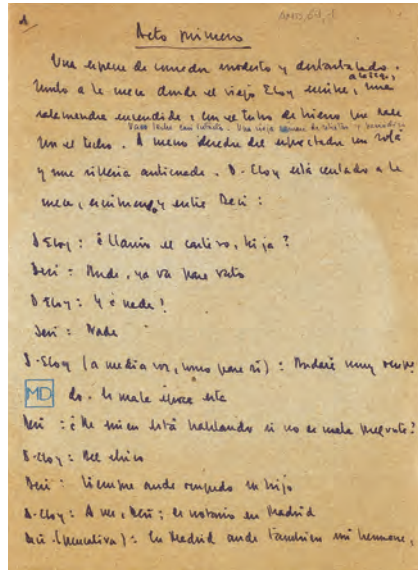 1
AMD, 64, 1
Acto primero
Una especie de comedor modesto y destartalado.
Junto a la mesa donde el viejo Eloy escribe, una
salamandra encendida: con el tubo de hierro que sale
Vaso leche casi intacto. Una vieja
por el techo. A mano derecha del espectador un sofá
y una sillería anticuada. D. Eloy está sentado a la
mesa, escribiendo, y entra Desi:
D Eloy: ¿Llamó el cartero, hija?
Desi: Ande, ya va para rato
D Eloy: Y ¿nada?
Desi: Nada
D. Eloy (a media voz, como para sí): Andará muy ocupa
MD do. Es mala época esta
Desi: ¿De quién está hablando si no es mala pregunta?
D. Eloy: Del chico
Desi: Siempre anda ocupado su hijo
D. Eloy: A ver, Desi; es notario en Madrid
Desi (pensativa): En Madrid anda también mi hermana,